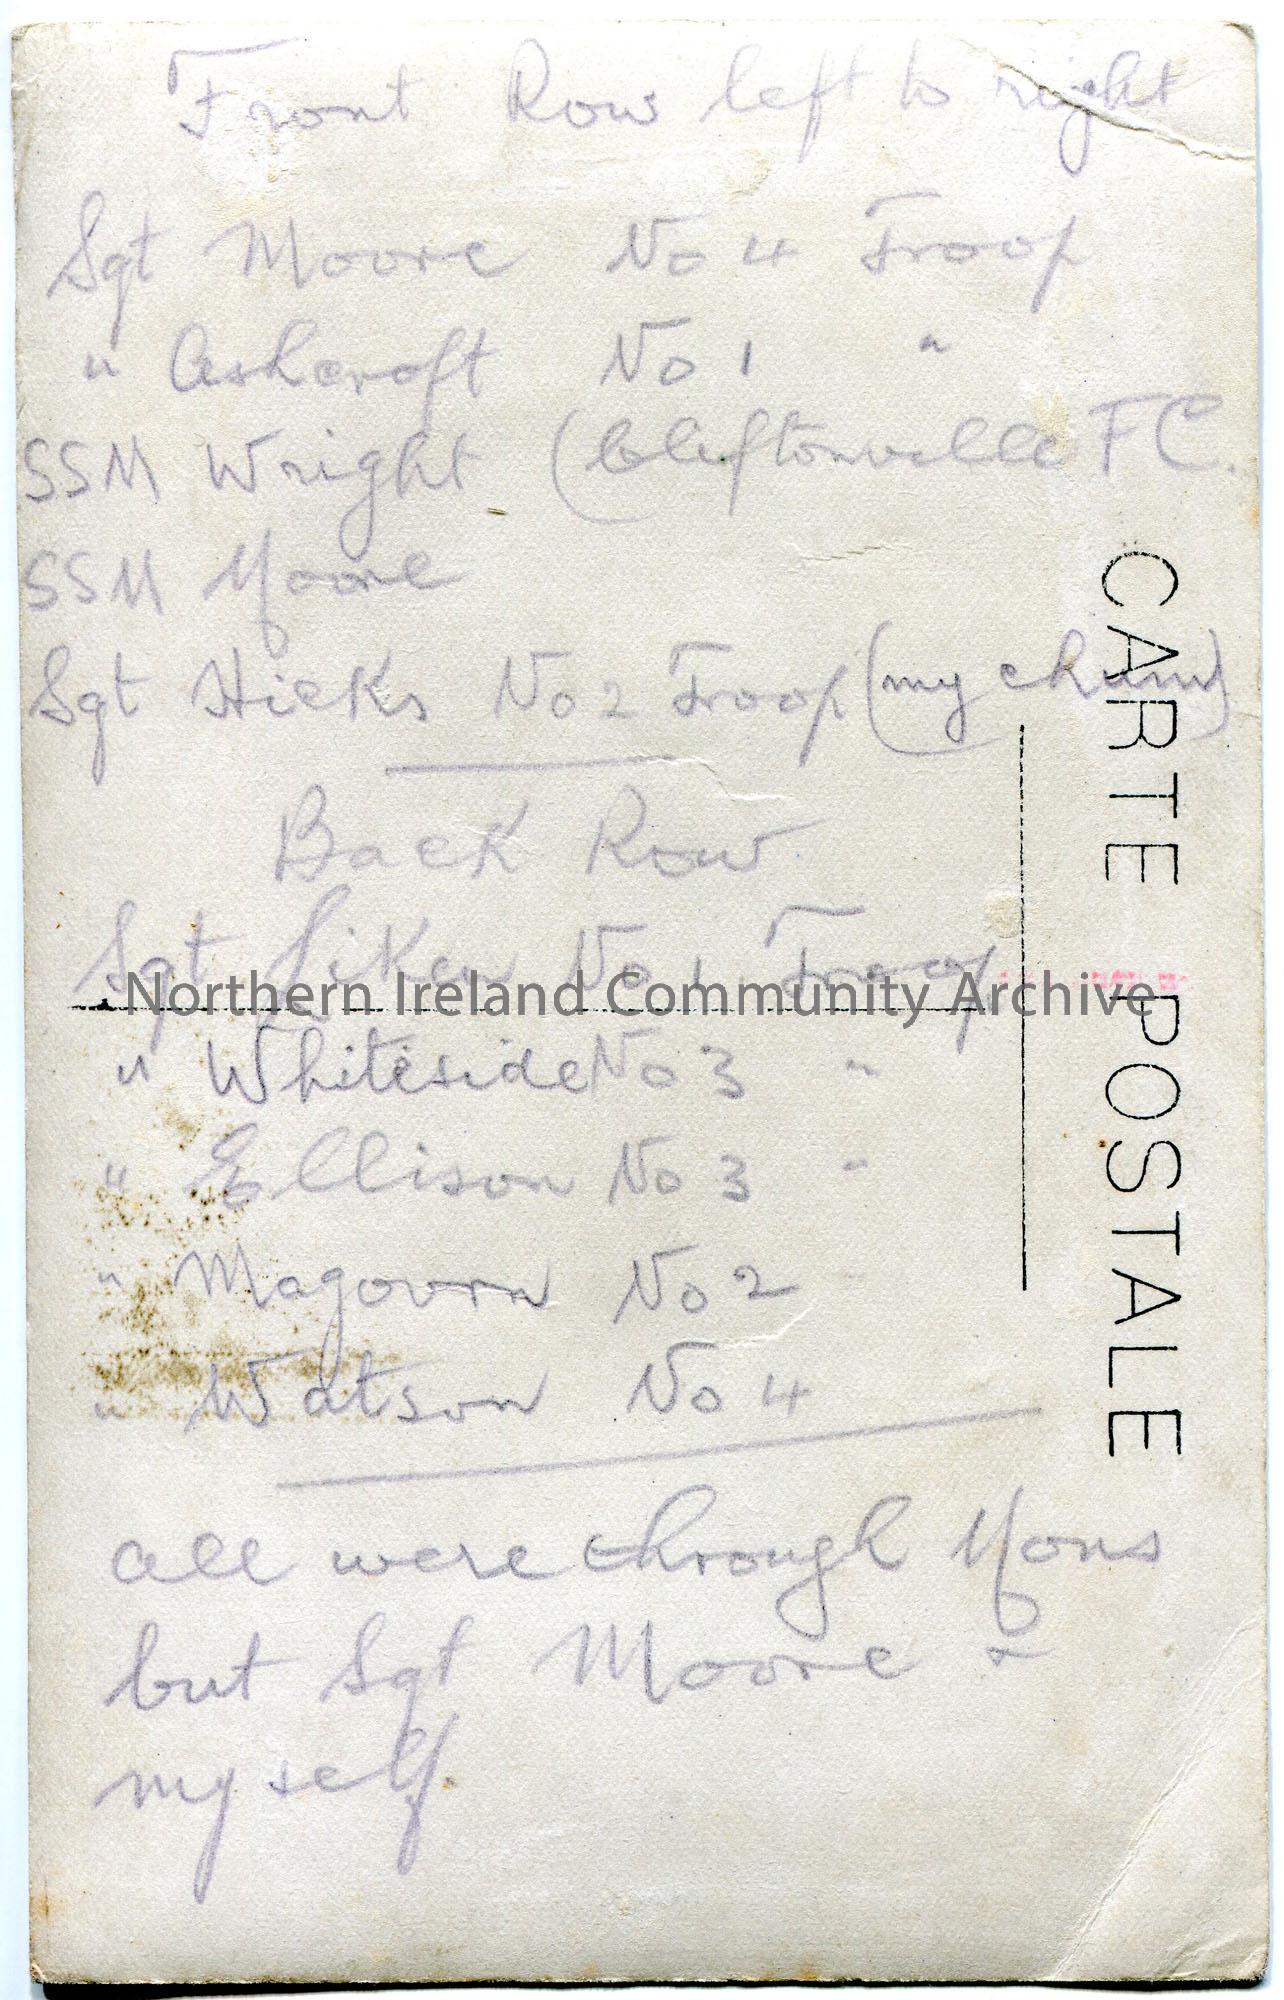 Front Row left to right
Sgt Moore No 4 Troop
" Ashcroft No 1 "
SSM Wright (Cliftonville FC.
SSM Moore
Sgt Hicks No 2 Troop (my chum)
Back Row
Sgt No 1 Troop
" Whiteside No 3 "
" Ellison No 3 "
" Magovrn No 2
" Watson No 4
all were through Mons
but Sgt Moore +
myself.
CARTE POSTALE
Northern Ireland Community Archive